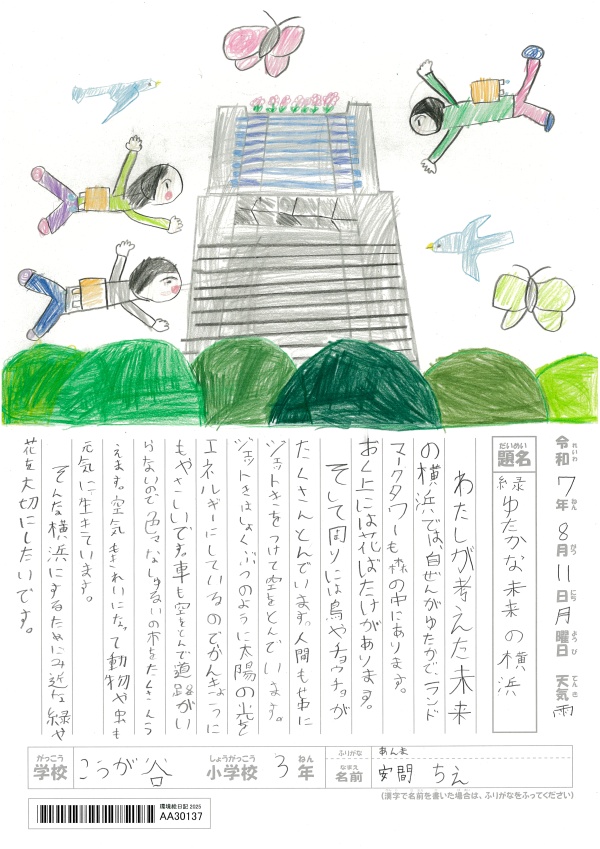 令和7年8月11日月曜日 天気 雨
れいわ ねん がつ にち ようび てんき
だいめい
題名
緑ゆたかな未来の横浜
わたしが考えた未来
の横浜では、自ぜんがゆたかで、ランド
マークタワーも森の中にあります。
おく上には花ばたけがあります。
そして周りには鳥やチョウチョが
たくさんとんでいます。人間もせ中に
ジェットきをつけて空をとんでいます。
ジェットきはしょくぶつのように太陽の光を
エネルギーにしているのでかんきょうに
もやさしいです。車も空をとんで道路がい
らないので色々なしゅるいの木をたくさんう
えます。空気もきれいになって動物や虫も
元気に生きています。
そんな横浜にするためにみ近な緑や
花を大切にしたいです。
がっこう
学校
こうが谷
しょうがっこう
小学校
3
ねん
年
ふりがな
あんま
なまえ
名前
安間 ちえ
(漢字で名前を書いた場合は、ふりがなをふってください)
環境絵日記 2025
AA30137